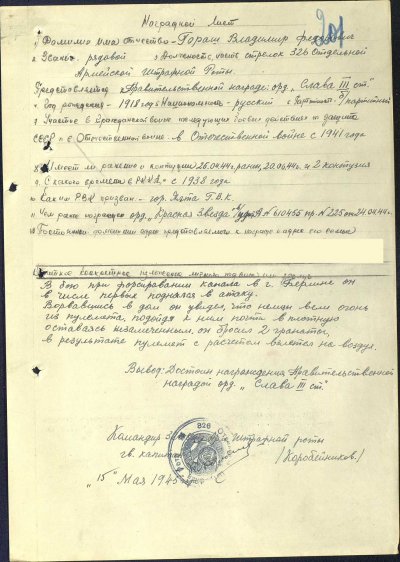 Наградной Лист
201
1) Фамилия имя отчество - Гораш Владимир Федорович
2. Звание рядовой 3 Должность, часть стрелок 326 Отдельной
Армейской штрафной Роты.
Представляется к Правительственной награде: орд. "Слава III ст"
4. Год рождения - 1918 года 5 Национальность - русский 6 Партийность - б/партийный
7. Участие в гражданской войне последующих боевых действиях по защите
СССР и в Отечественной войне - в Отечественной войне с 1941 года
8. Имеет ли ранения и контузии 26.04.44г. ранен, 20.06.44г. и 2 контузия
9. С какого времени в РККА - с 1938 года
10. Каким РВК призван - гор. Ялта Г.В.К.
11. Чем ранее награжден орд. "Красная Звезда" № 610455 пр. № 225 от 24.04.44г.
12. Постоянный домашний адрес представляемого к награде и адрес его семьи
Краткое конкретное изложение личного подвига или заслуг
В бою при форсировании канала в г. Берлине он
в числе первых поднялся в атаку.
Ворвавшись в дом он увидел, что немцы вели огонь
из пулемета, подойдя к ним почти в плотную
оставаясь незамеченным, он бросил 2 гранаты,
в результате пулемет с расчетом взлетел на воздух.
Вывод: Достоин награждения Правительственной
наградой орд. "Слава III ст".
Командир штрафной роты
гв. капитан /Коробейников/
"15" Мая 1945